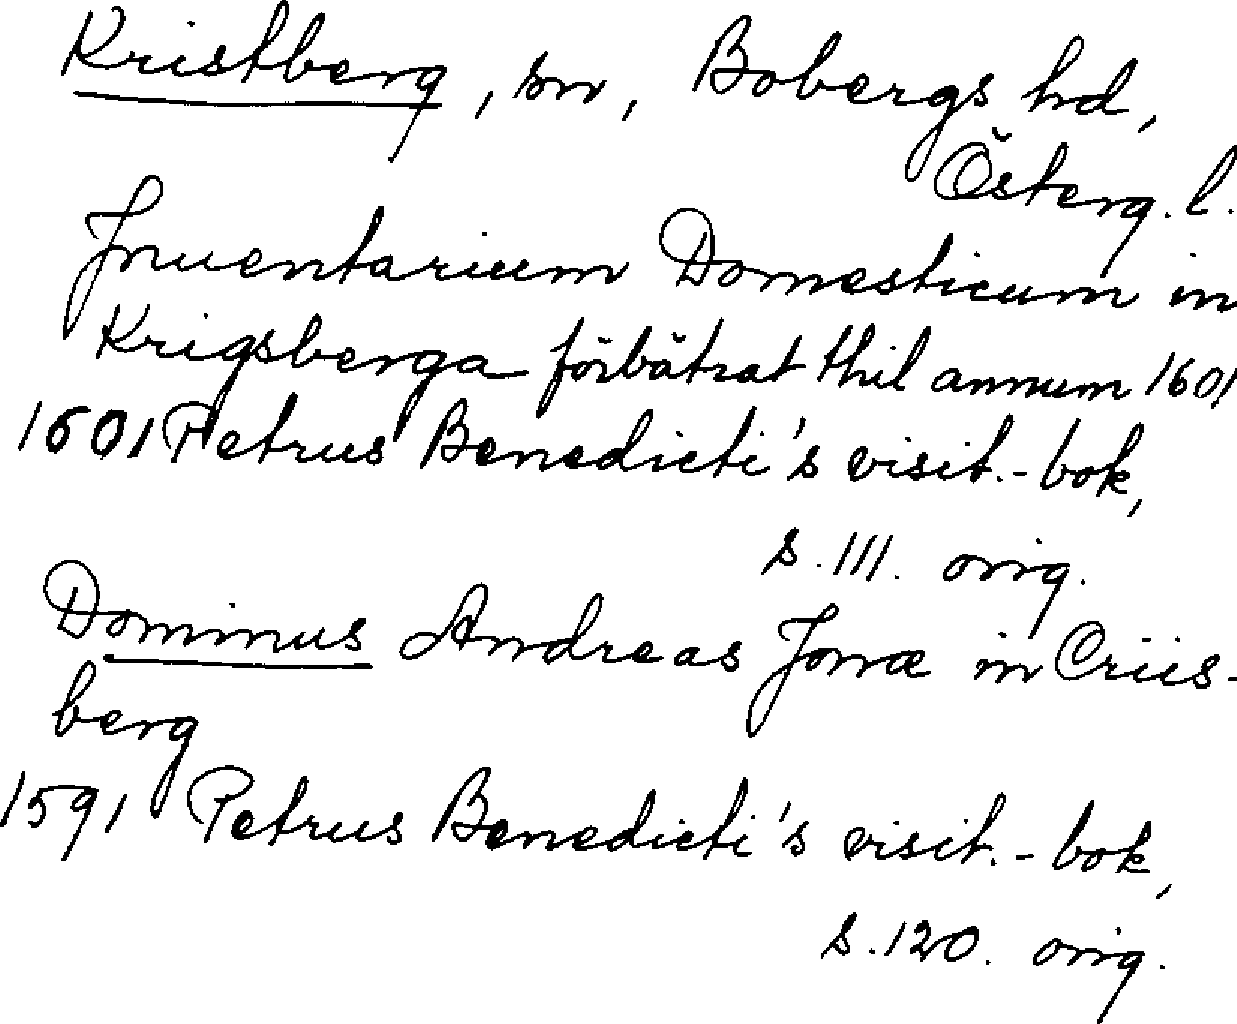 Kristberg, sn, Bobergs hd,
Österg. l.
Inuentarium Domesticum in
Krigsberga förbätrat thil annum 1601
1601 Petrus Benedicti's visit.-bok,
s. 111. orig.
Dominus Andreas Jonæ in Criis-
berg
1591 Petrus Benedicti's visit.-bok,
s. 120. orig.